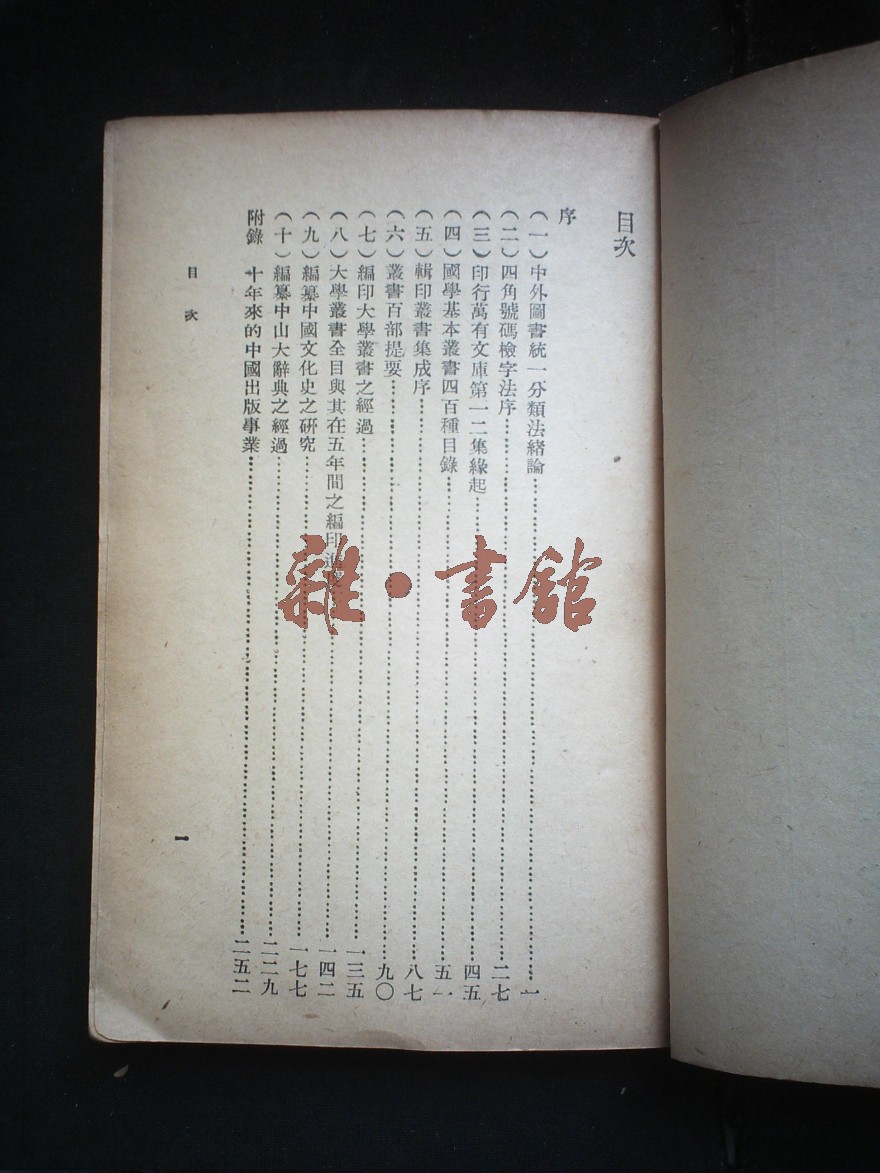 目次
序
(一)中外圖書統一分類法緒論……一
(二)四角號碼檢字法序……二七
(三)印行萬有文庫第一二集緣起……四五
(四)國學基本叢書四百種目錄……五一
(五)輯印叢書集成序……八七
(六)叢書百部提要……九〇
(七)編印大學叢書之經過……一三五
(八)大學叢書全目與其在五年間之編印……一四二
(九)編纂中國文化史之研究……一七七
(十)編纂中山大辭典之經過……二二九
附錄 十年來的中國出版事業……二五二
目次
一
雜·書館